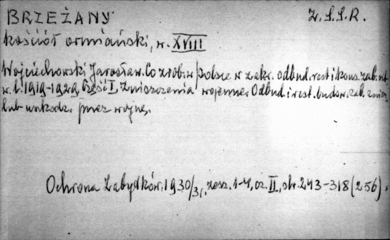 BRZEŻANY Z.S.S.R.
kościół ormiański, w. XVIII
Wojciechowski Jarosław. Co zrob. w Polsce w zakr. odbud. rest. i kons. zab. szt.
w l. 1919-1929. Część I. Zniszczenia wojenne. Odbud. i rest. budow. zab. zniszcz.
lub uszkodz. przez wojnę.
Ochrona Zabytków. 1930/31, zesz. 1-4, cz. II, str. 243-318 (256).